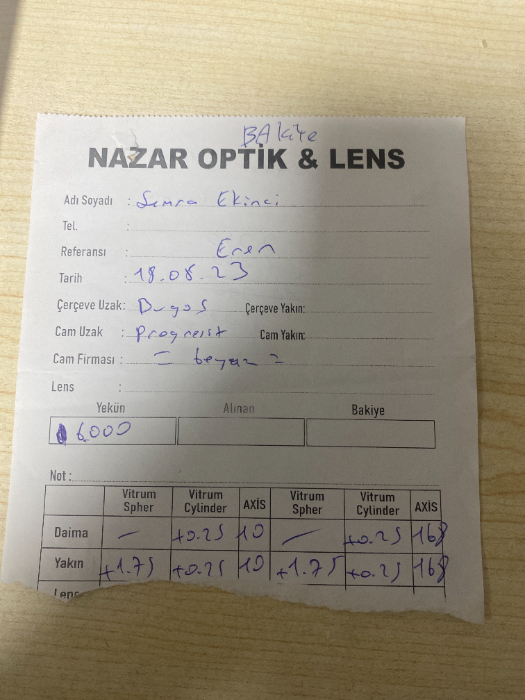 BAkiye
NAZAR OPTİK & LENS
Adı Soyadı : Semra Ekinci
Tel. :
Referansı : Eren
Tarih : 18.08.23
Çerçeve Uzak: Çerçeve Yakın:
Cam Uzak : Progresist Cam Yakın:
Cam Firması : = beyaz =
Lens :
Yekün Alınan Bakiye
6000
Not :
Vitrum Spher Vitrum Cylinder AXİS Vitrum Spher Vitrum Cylinder AXİS
Daima — +0.25 10 — +0.25 168
Yakın +1.75 +0.25 10 +1.75 +0.25 168
Lens